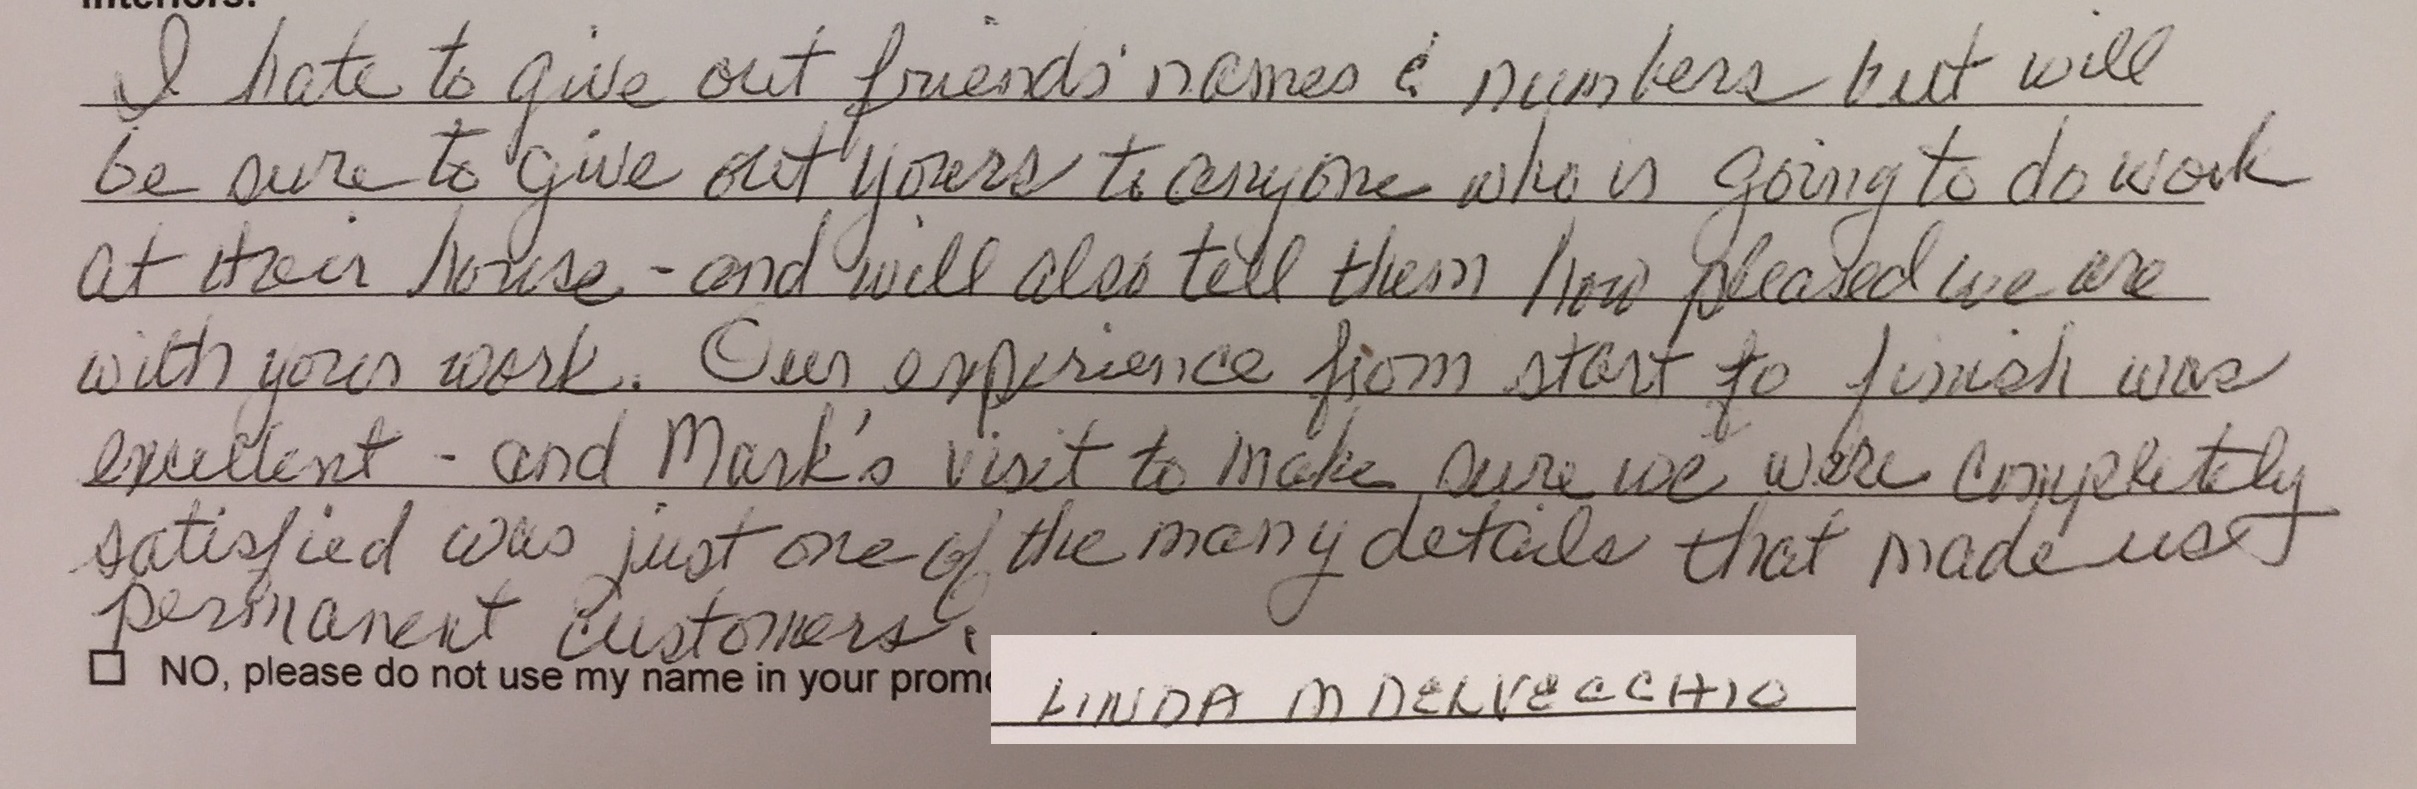 Interiors:
I hate to give out friends' names & numbers but will
be sure to give out yours to anyone who is going to do work
at their house - and will also tell them how pleased we are
with your work. Our experience from start to finish was
excellent - and Mark's visit to make sure we were completely
satisfied was just one of the many details that made us
permanent customers.
☐ NO, please do not use my name in your promo
LINDA M DELVECCHIO